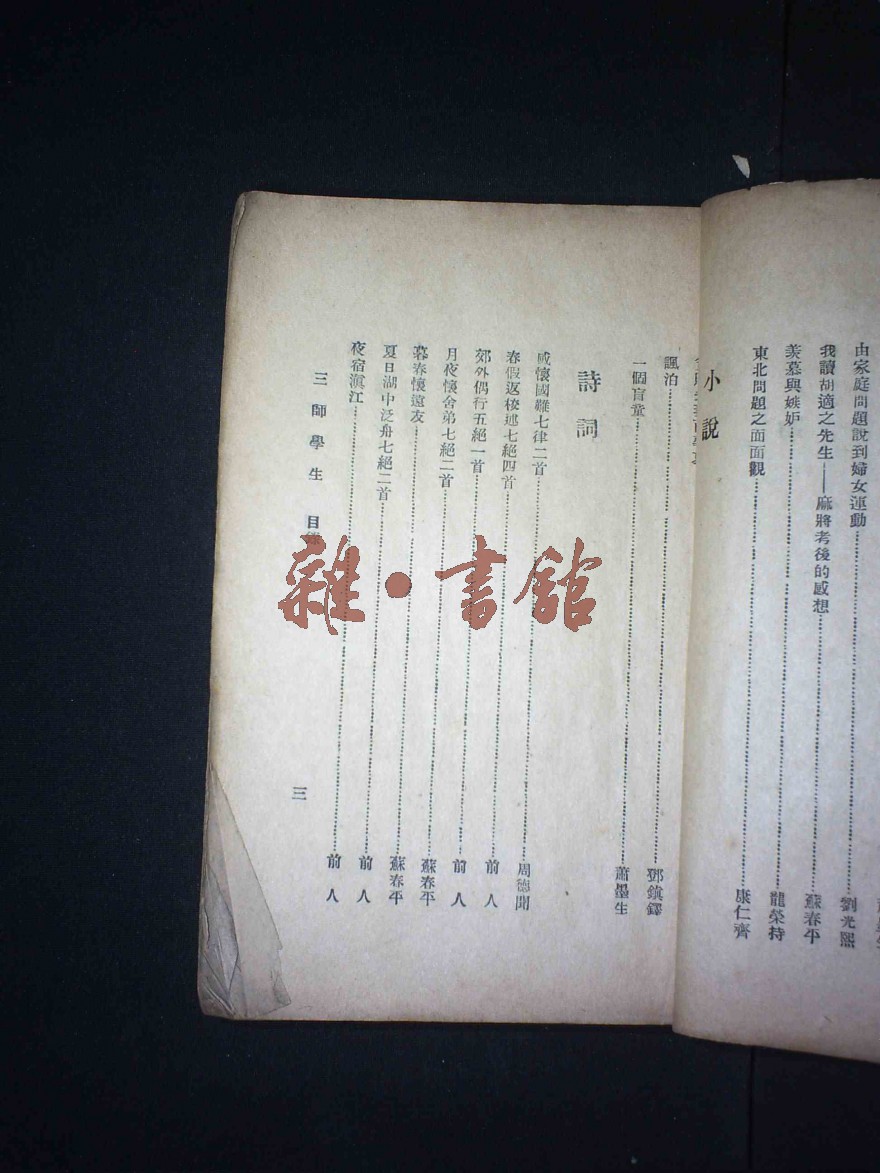 由家庭問題說到婦女運動……劉光熙
我讀胡適之先生——麻將考後的感想……蘇春平
羨慕與嫉妒……龍榮持
東北問題之面面觀……康仁齊
小說
飄泊……鄧鎮鐸
一個盲童……蕭墨生
詩詞
感懷國難七律二首……周德聞
春假返校述七絕四首……前人
郊外偶行五絕一首……前人
月夜懷舍弟七絕二首……前人
暮春懷遠友……蘇春平
夏日湖中泛舟七絕二首……蘇春平
夜宿滇江……前人
前人
三師學生 目錄
三
雜·書館